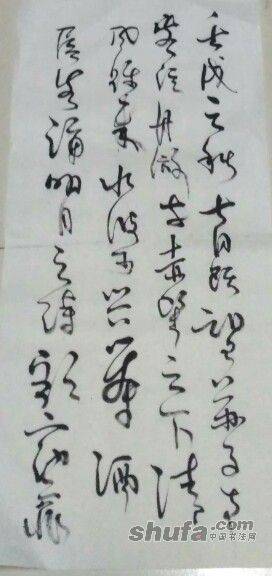 壬戌之秋七月既望蘇子与
客泛舟游于赤壁之下清
风徐来水波不兴举酒
属客诵明月之诗歌窈窕之章
shufa.com
中国书法网